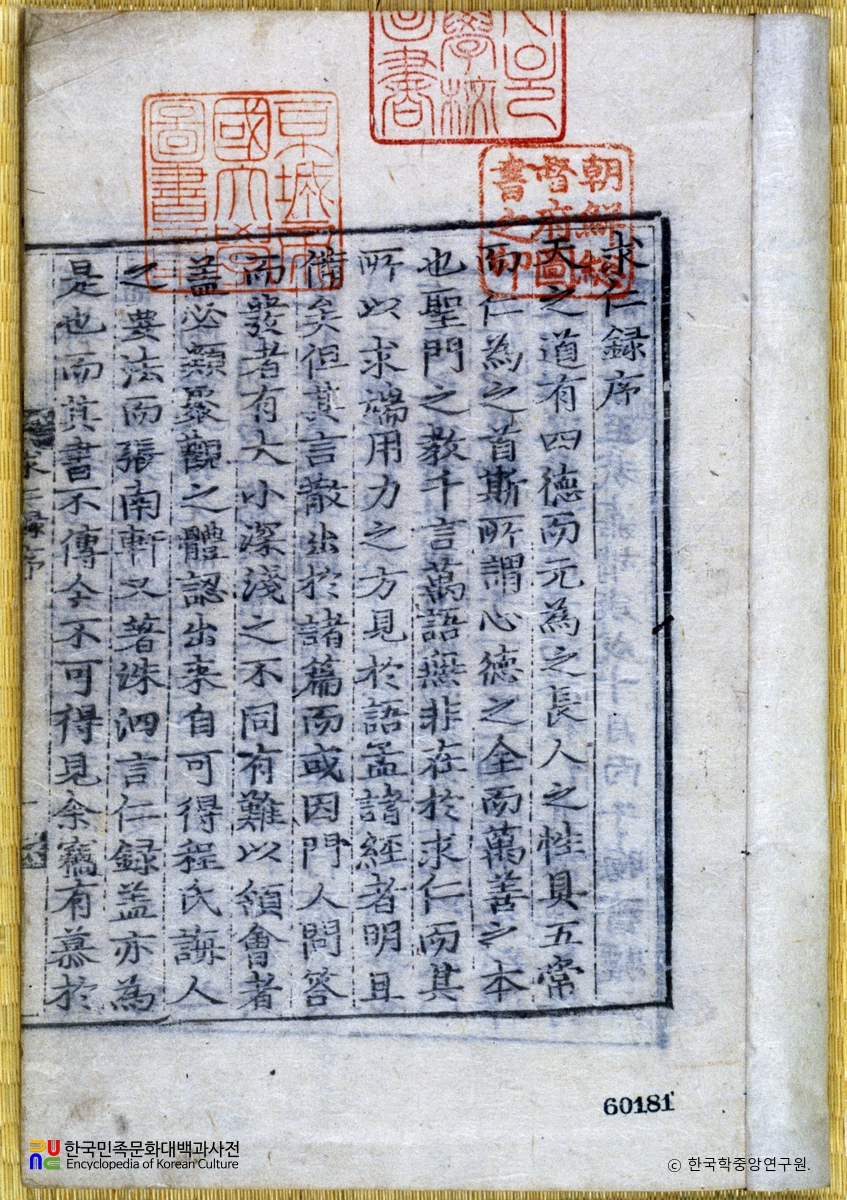 朝鮮總
督府圖
書之印
京城帝
國大學
圖書章
求仁録序
天之道有四德而元為之長人之性具五常
而仁為之首斯所謂心德之全而萬善之本
也聖門之教千言萬語無非在於求仁而其
所以求端用力之方見於語孟諸經者明且
備矣但其言散出於諸篇而或因門人問答
而發者有大小深淺之不同有難以領會者
盖必類聚觀之體認出来自可得程氏誨人
之要法而張南軒又著洙泗言仁録盖亦為
是也而其書不傳今不可得見余竊有慕於
求仁録序
一
60181
한국민족문화대백과사전
Encyclopedia of Korean Culture
© 한국학중앙연구원.